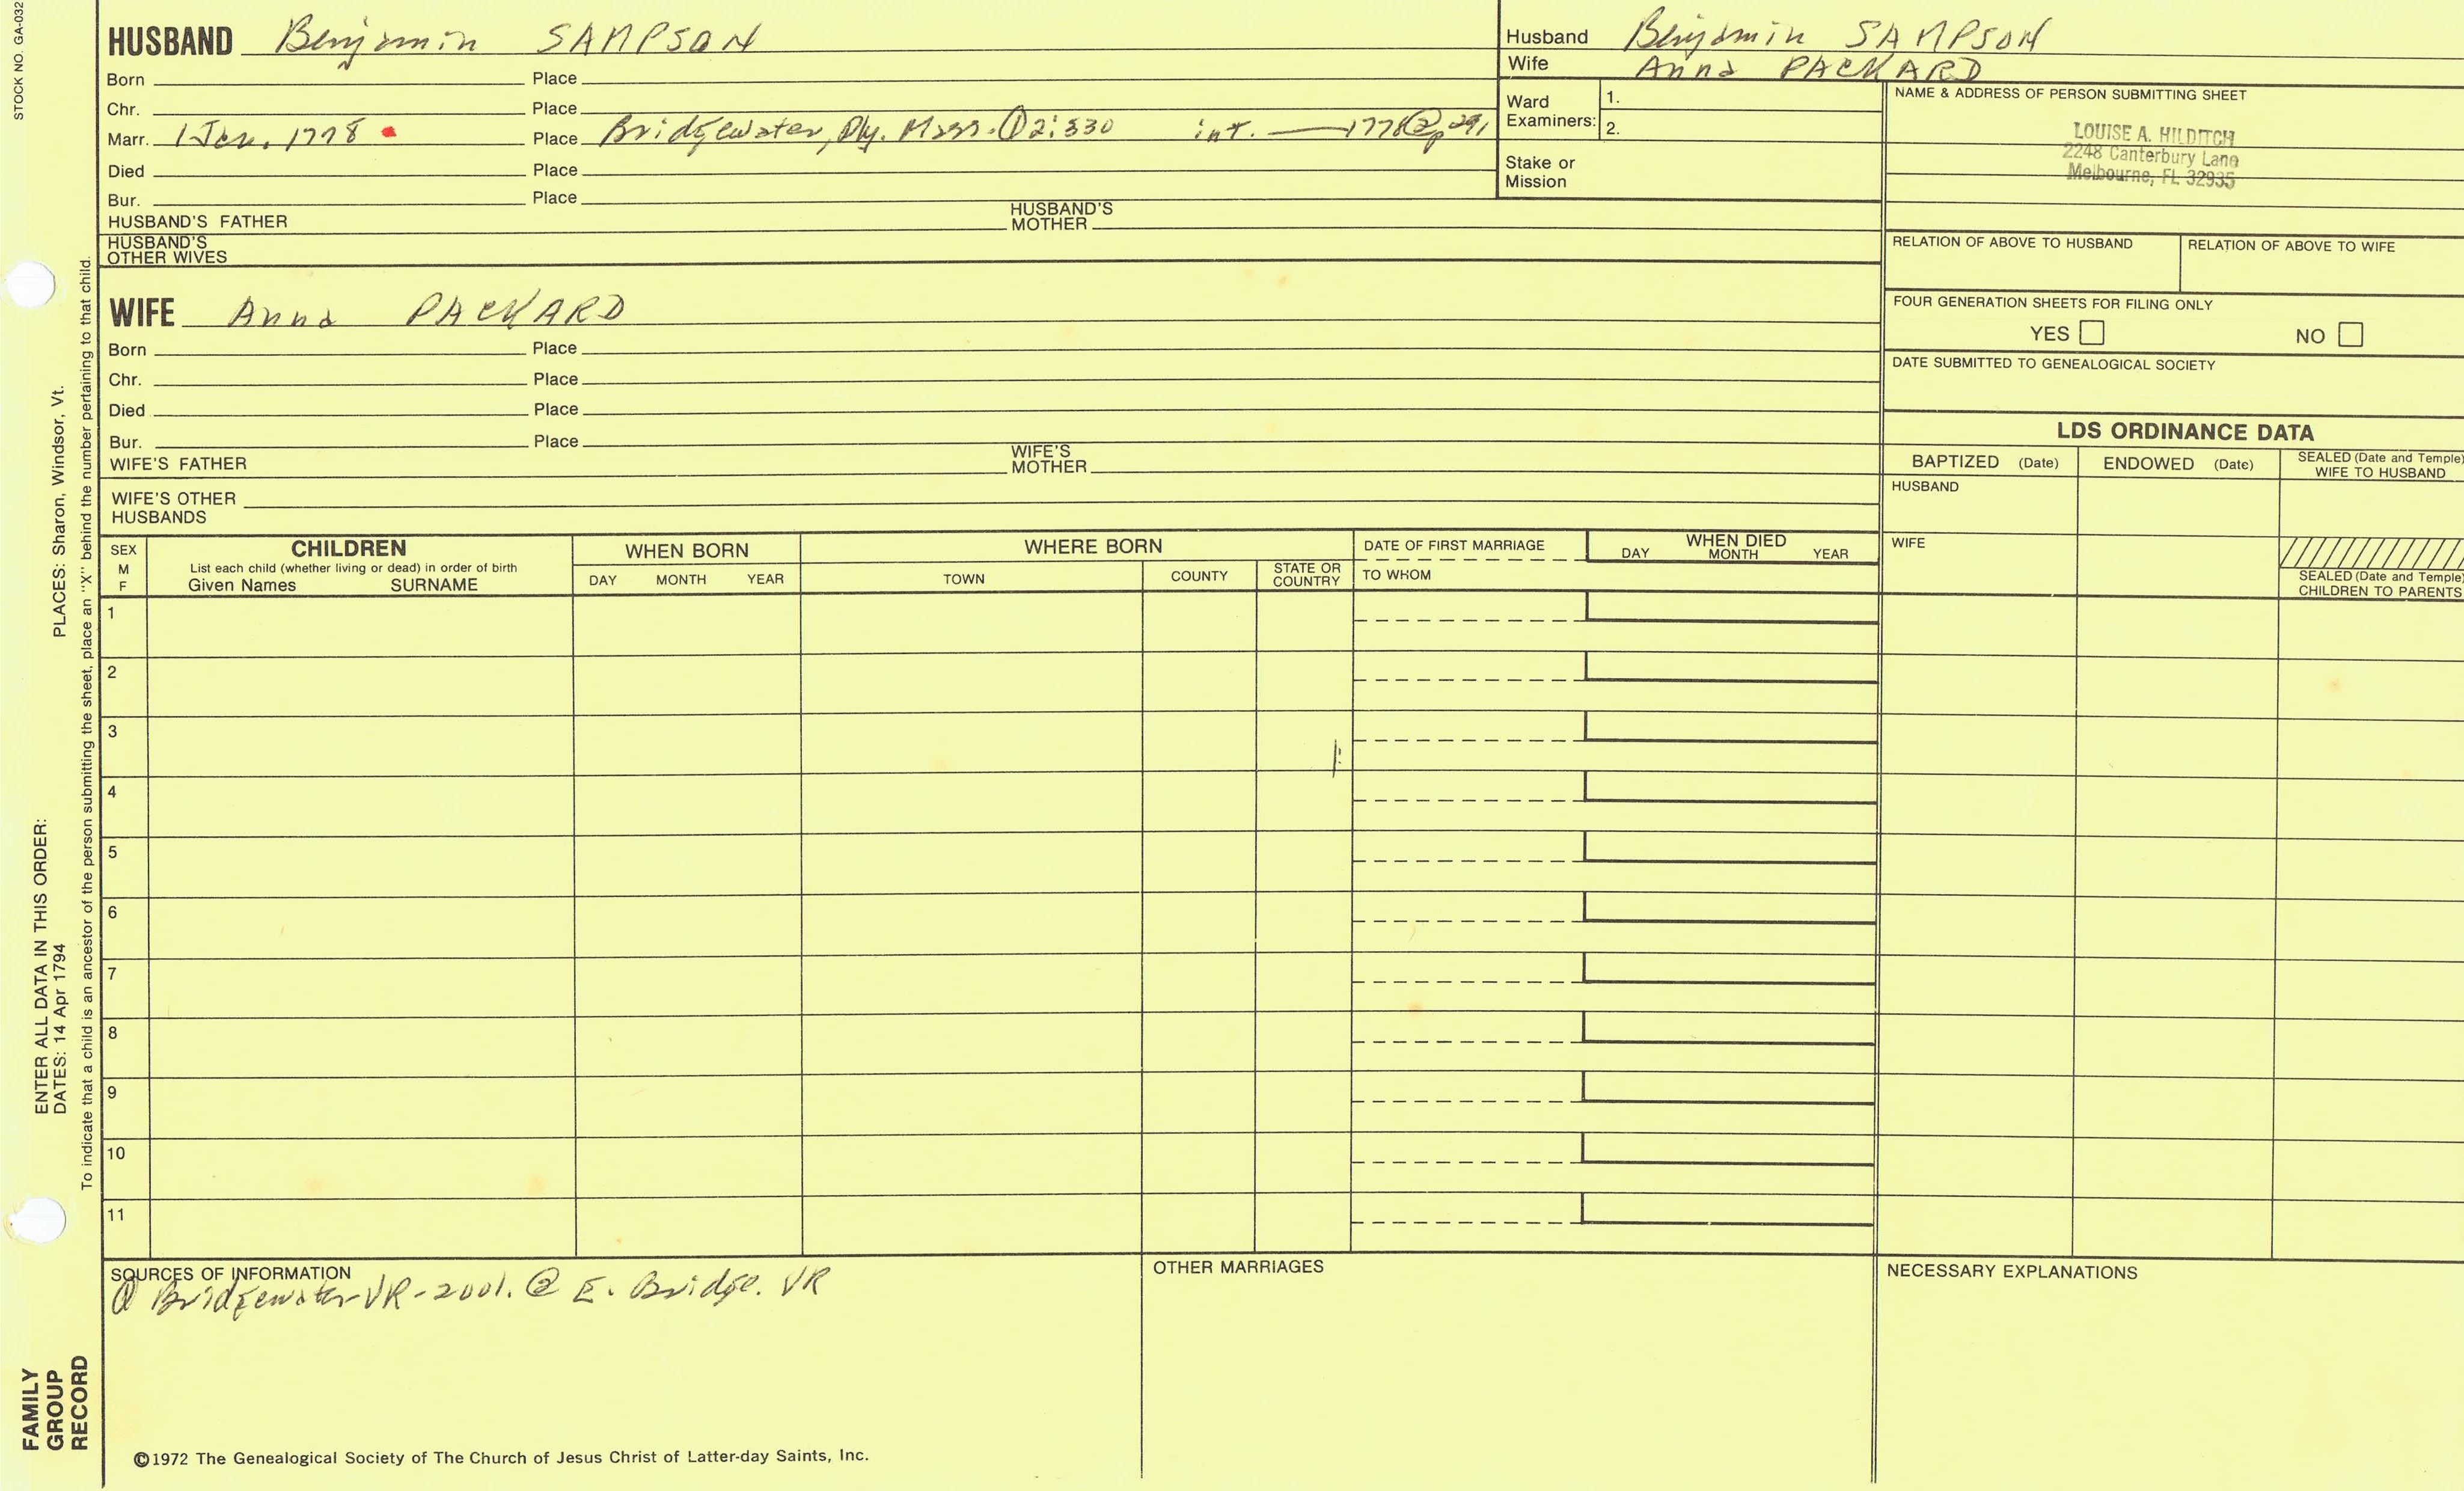 STOCK NO. GA-032
HUSBAND Benjamin SAMPSON
Born Place
Chr. Place
Marr. 1 Jan. 1778 Place Bridgewater, Ply. Mass. ① 2:330 int. — 1778 ② p291
Died Place
Bur. Place
HUSBAND'S FATHER HUSBAND'S MOTHER
HUSBAND'S
OTHER WIVES
Husband Benjamin SAMPSON
Wife Anna PACKARD
Ward
Examiners:
1.
2.
Stake or
Mission
NAME & ADDRESS OF PERSON SUBMITTING SHEET
LOUISE A. HILDITCH
2248 Canterbury Lane
Melbourne, FL 32935
RELATION OF ABOVE TO HUSBAND
RELATION OF ABOVE TO WIFE
FOUR GENERATION SHEETS FOR FILING ONLY
YES NO
DATE SUBMITTED TO GENEALOGICAL SOCIETY
WIFE Anna PACKARD
Born Place
Chr. Place
Died Place
Bur. Place
WIFE'S FATHER WIFE'S MOTHER
WIFE'S OTHER
HUSBANDS
LDS ORDINANCE DATA
BAPTIZED (Date)
ENDOWED (Date)
SEALED (Date and Temple)
WIFE TO HUSBAND
HUSBAND
WIFE
SEALED (Date and Temple)
CHILDREN TO PARENTS
SEX
M
F
CHILDREN
List each child (whether living or dead) in order of birth
Given Names SURNAME
WHEN BORN
DAY MONTH YEAR
WHERE BORN
TOWN
COUNTY
STATE OR
COUNTRY
DATE OF FIRST MARRIAGE
TO WHOM
WHEN DIED
DAY MONTH YEAR
1
2
3
4
5
6
7
8
9
10
11
SOURCES OF INFORMATION
① Bridgewater VR-2001. ② E. Bridge. VR
OTHER MARRIAGES
NECESSARY EXPLANATIONS
©1972 The Genealogical Society of The Church of Jesus Christ of Latter-day Saints, Inc.
FAMILY
GROUP
RECORD
ENTER ALL DATA IN THIS ORDER:
DATES: 14 Apr 1794 PLACES: Sharon, Windsor, Vt.
To indicate that a child is an ancestor of the person submitting the sheet, place an "X" behind the number pertaining to that child.